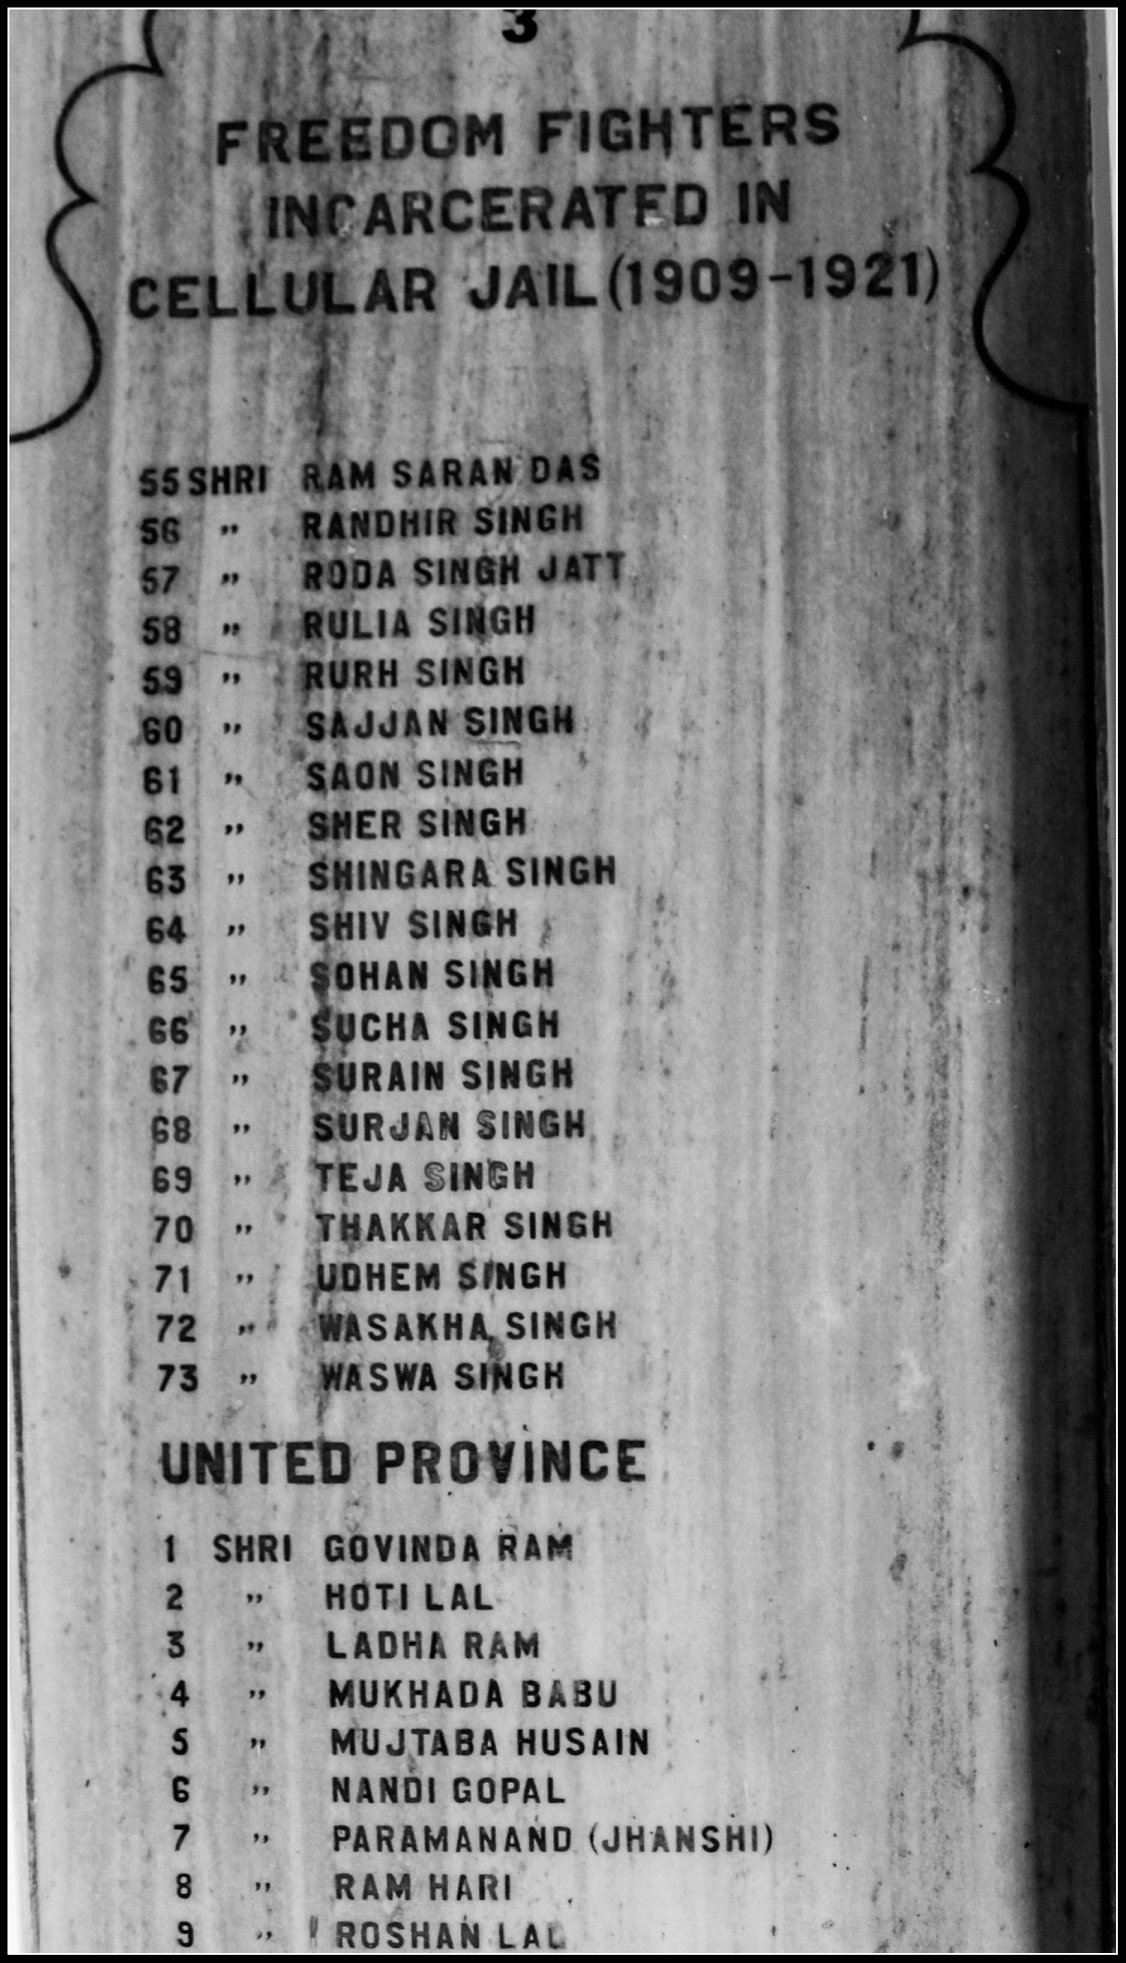 3
FREEDOM FIGHTERS
INCARCERATED IN
CELLULAR JAIL (1909-1921)
55 SHRI RAM SARAN DAS
56 " RANDHIR SINGH
57 " RODA SINGH JATT
58 " RULIA SINGH
59 " RURH SINGH
60 " SAJJAN SINGH
61 " SAON SINGH
62 " SHER SINGH
63 " SHINGARA SINGH
64 " SHIV SINGH
65 " SOHAN SINGH
66 " SUCHA SINGH
67 " SURAIN SINGH
68 " SURJAN SINGH
69 " TEJA SINGH
70 " THAKKAR SINGH
71 " UDHEM SINGH
72 " WASAKHA SINGH
73 " WASWA SINGH
UNITED PROVINCE
1 SHRI GOVINDA RAM
2 " HOTI LAL
3 " LADHA RAM
4 " MUKHADA BABU
5 " MUJTABA HUSAIN
6 " NANDI GOPAL
7 " PARAMANAND (JHANSHI)
8 " RAM HARI
9 " ROSHAN LAL